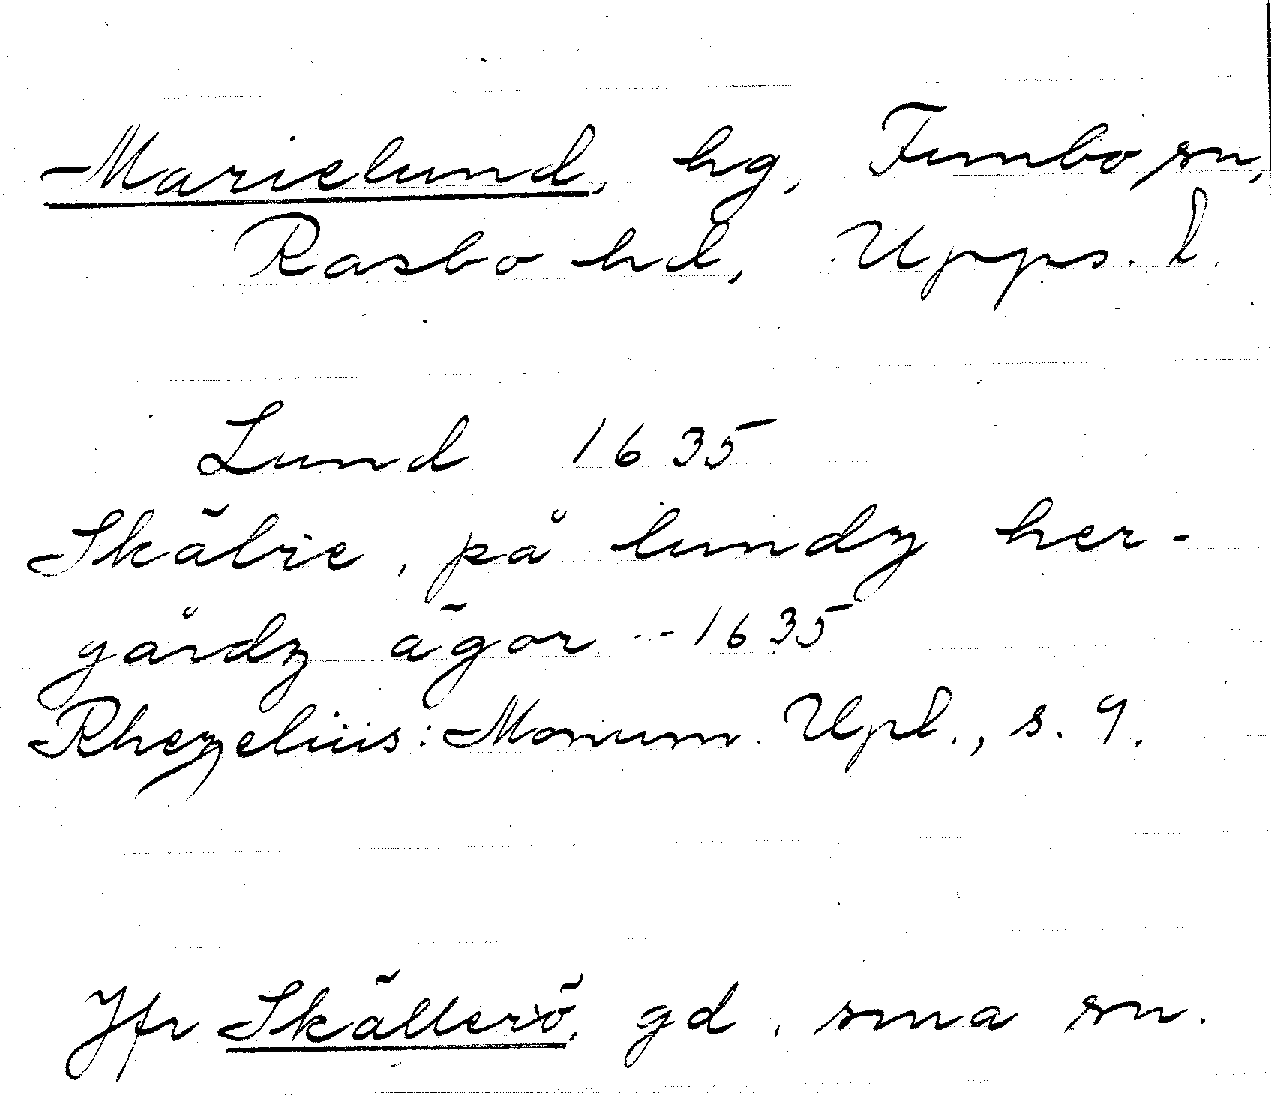 Marielund, hg, Funbo sn,
Rasbo hd, Upps. l.
Lund 1635
Skälrie, på lundz her-
gårdz ägor -- 1635
Rhezelius: Monum. Upl., s. 9.
Jfr Skällerö, gd, sma sn.